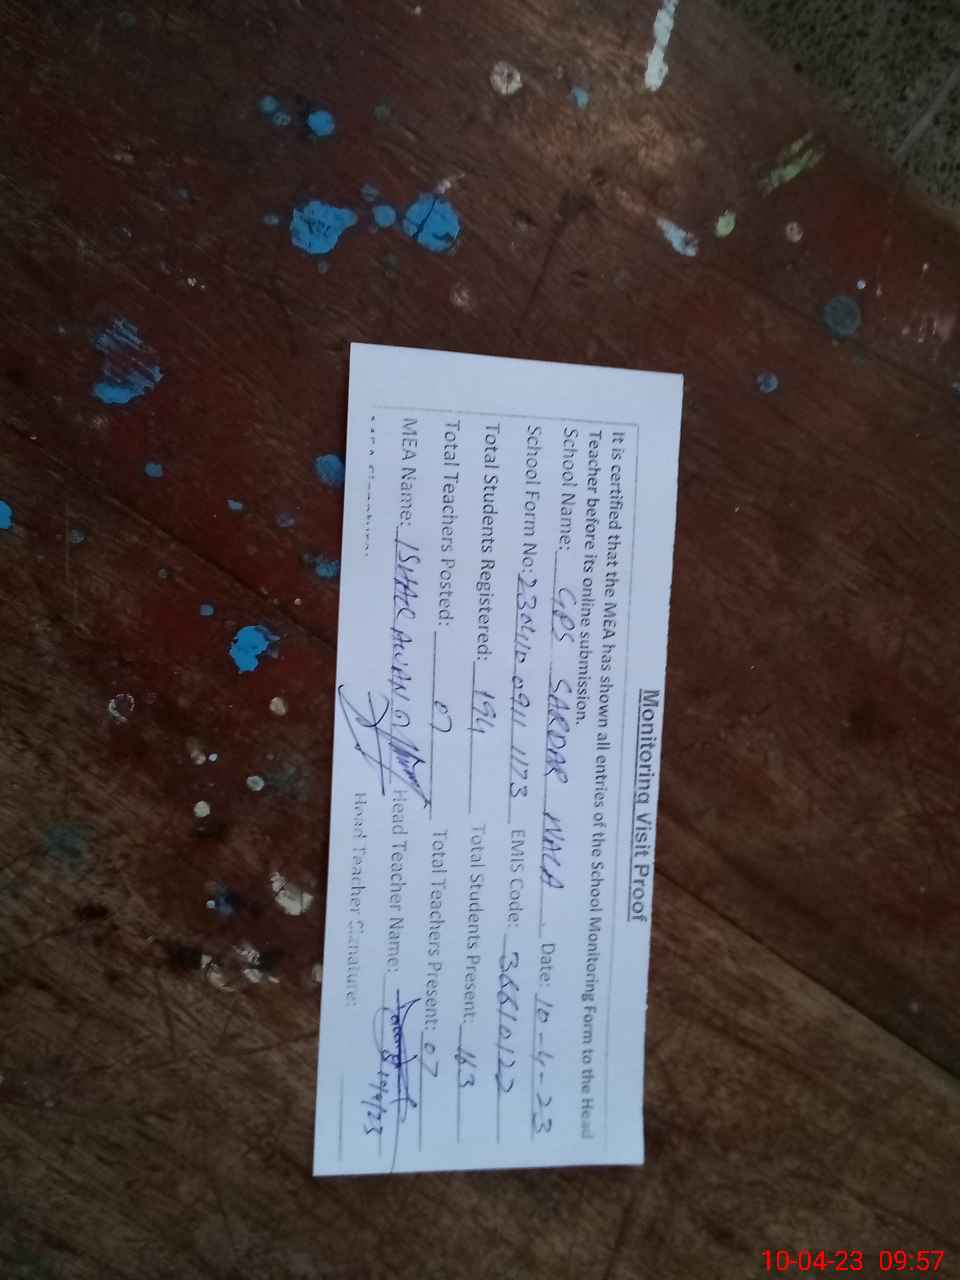 Monitoring Visit Proof
It is certified that the MEA has shown all entries of the School Monitoring Form to the Head
Teacher before its online submission.
School Name: GPS SARDAR WALA Date: 10-4-23
School Form No: EMIS Code: 36610122
Total Students Registered: 194 Total Students Present: 163
Total Teachers Posted: 07 Total Teachers Present: 07
MEA Name: AWAN Head Teacher Name:
Head Teacher Signature:
10-04-23 09:57